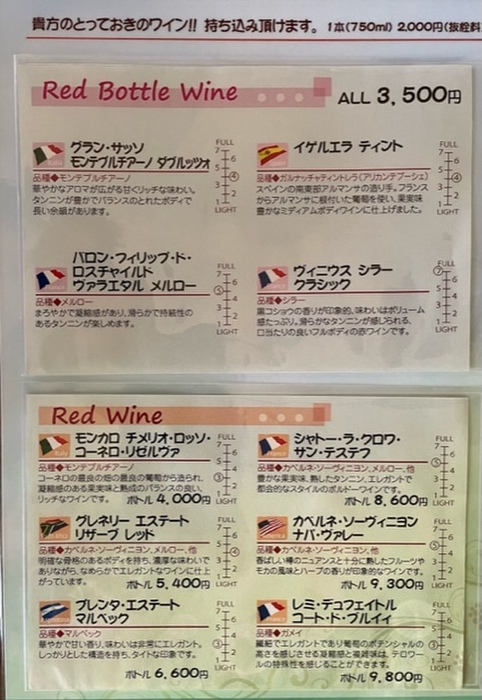 貴方のとっておきのワイン!! 持ち込み頂けます。 1本(750ml) 2,000円(抜栓料
Red Bottle Wine
ALL 3,500円
グラン・サッソ
モンテプルチアーノ ダブルッツォ
品種◆モンテプルチアーノ
華やかなアロマが広がる甘くリッチな味わい。
タンニンが豊かでバランスのとれたボディで
長い余韻があります。
FULL
7
6
5
④
3
2
1
LIGHT
イゲルエラ ティント
品種◆ガルナッチャティントレラ(アリカンテブーシェ)
スペインの南東部アルマンサの造り手。フランス
からアルマンサに根付いた葡萄を使い、果実味
豊かなミディアムボディワインに仕上げました。
FULL
7
6
5
④
3
2
1
LIGHT
バロン・フィリップ・ド・
ロスチャイルド
ヴァラエタル メルロー
品種◆メルロー
まろやかで凝縮感があり、滑らかで持続性の
あるタンニンが楽しめます。
FULL
7
6
⑤
4
3
2
1
LIGHT
ヴィニウス シラー
クラシック
品種◆シラー
黒コショウの香りが印象的、味わいはボリューム
感たっぷり。滑らかなタンニンが感じられる、
口当たりの良いフルボディの赤ワインです。
FULL
⑦
6
5
4
3
2
1
LIGHT
Red Wine
モンカロ チメリオ・ロッソ・
コーネロ・リゼルヴァ
品種◆モンテプルチアーノ
コーネロの最良の畑の最良の葡萄から造られ、
凝縮感のある果実味と熟成のバランスの良い、
リッチなワインです。
ボトル 4,000円
FULL
7
6
5
4
③
2
1
LIGHT
シャトー・ラ・クロワ・
サン・テステフ
品種◆カベルネ・ソーヴィニヨン、メルロー、他
豊かな果実味、熟したタンニン、エレガントで
都会的なスタイルのボルドーワインです。
ボトル 8,600円
FULL
7
6
⑤
4
3
2
1
LIGHT
グレネリー エステート
リザーブ レッド
品種◆カベルネ・ソーヴィニヨン、メルロー、他
明確な骨格のあるボディを持ち、濃厚な味わいで
ありながら、なめらかでエレガントなワインに仕上
がっています。
ボトル 5,400円
FULL
7
6
5
④
3
2
1
LIGHT
カベルネ・ソーヴィニヨン
ナパ・ヴァレー
品種◆カベルネ・ソーヴィニヨン、他
香ばしい樽のニュアンスと十分に熟したフルーツや
モカの風味とハーブの香りが印象的なワインです。
ボトル 9,300円
FULL
7
6
⑤
4
3
2
1
LIGHT
プレンタ・エステート
マルベック
品種◆マルベック
華やかで甘い香り、味わいは非常にエレガント。
しっかりとした構造を持ち、タイトな印象です。
ボトル 6,600円
FULL
7
6
5
4
③
2
1
LIGHT
レミ・デュフェイトル
コート・ド・ブルイィ
品種◆ガメイ
繊細でエレガントであり葡萄のポテンシャルの
高さを感じさせる凝縮感と複雑味は、テロワー
ルの特殊性を感じることができます。
ボトル 9,800円
FULL
7
6
5
4
③
2
1
LIGHT